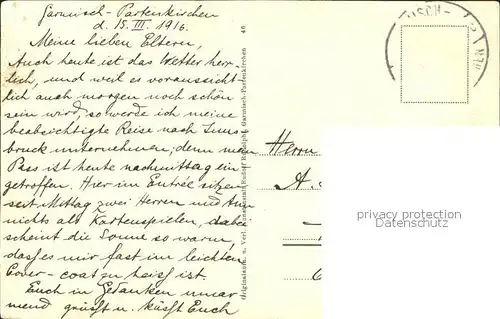 Garmisch-Partenkirchen
d. 15. III. 1916.
Meine lieben Eltern,
Auch heute ist das Wetter herr-
lich, und weil es voraussicht-
lich auch morgen noch schön
sein wird, so werde ich meine
beabsichtigte Reise nach Inns-
bruck unternehmen; denn mein
Pass ist heute nachmittag ein
getroffen. Hier im Entrée sitzen
seit Mittag zwei Herren und tun
nichts als Kartenspielen, dabei
scheint die Sonne so warm,
dass es mir fast im leichten
Cover-coat zu heiß ist.
Euch in Gedanken umar
mend grüßt u. küßt Euch
Originalaufn. u. Verl. Kunstanstalt Rudolf Rudolphi, Garmisch-Partenkirchen 46
ISCH-P
Herrn
A.
privacy protection